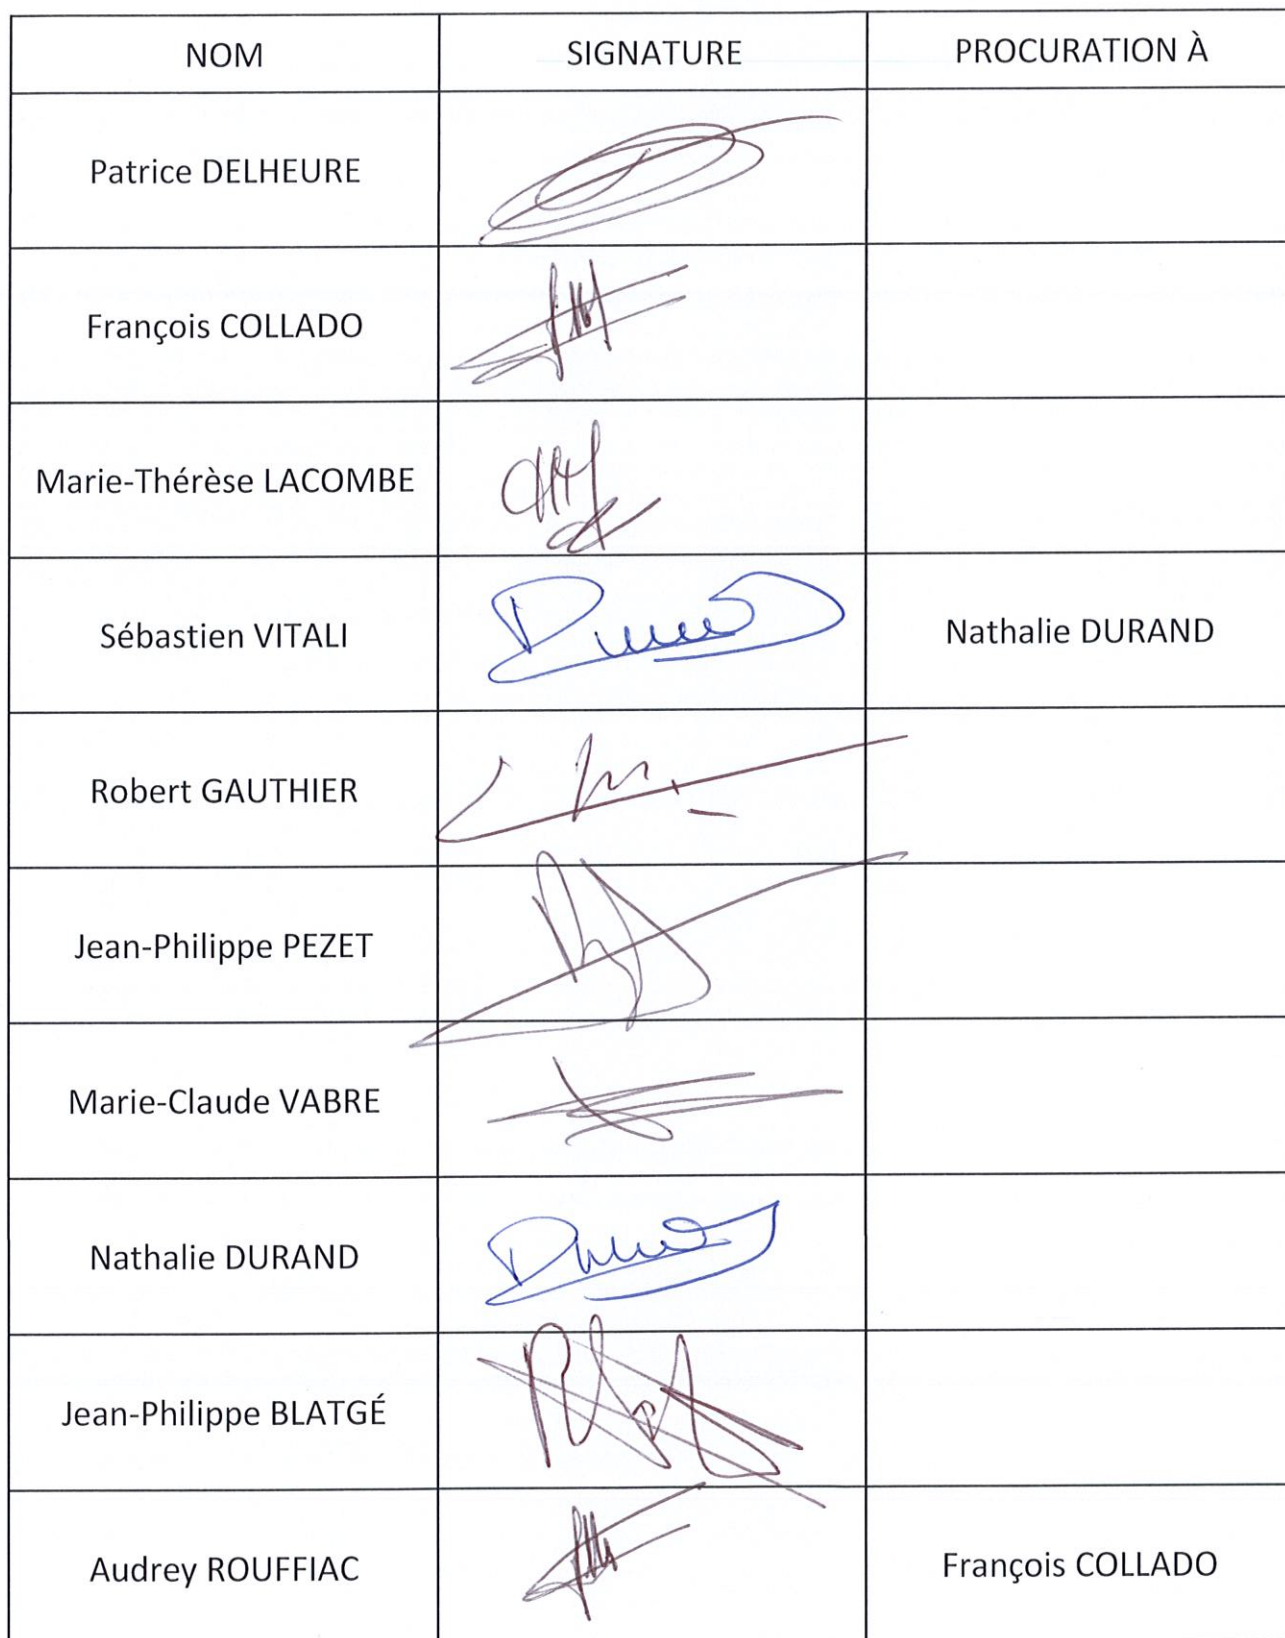 NOM SIGNATURE PROCURATION À
Patrice DELHEURE
François COLLADO
Marie-Thérèse LACOMBE
Sébastien VITALI Nathalie DURAND
Robert GAUTHIER
Jean-Philippe PEZET
Marie-Claude VABRE
Nathalie DURAND
Jean-Philippe BLATGÉ
Audrey ROUFFIAC François COLLADO